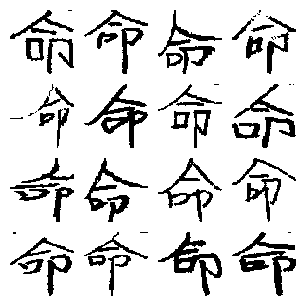 命命命命
命命命命
命命命命
命命命命